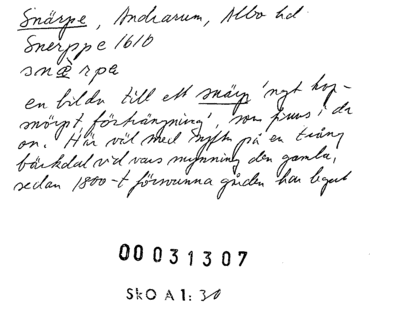 Snärpe, Andrarum, Albo hd
Snerppe 1610
snærpa
en bilda till ett snärp 'ngt hop-
snörpt, förträngning', som finns i da
on. Här väl med syftn på en trång
bäckdal vid vars mynning den gamla,
sedan 1800-t försvunna gården har legat
00031307
SkO A1:30